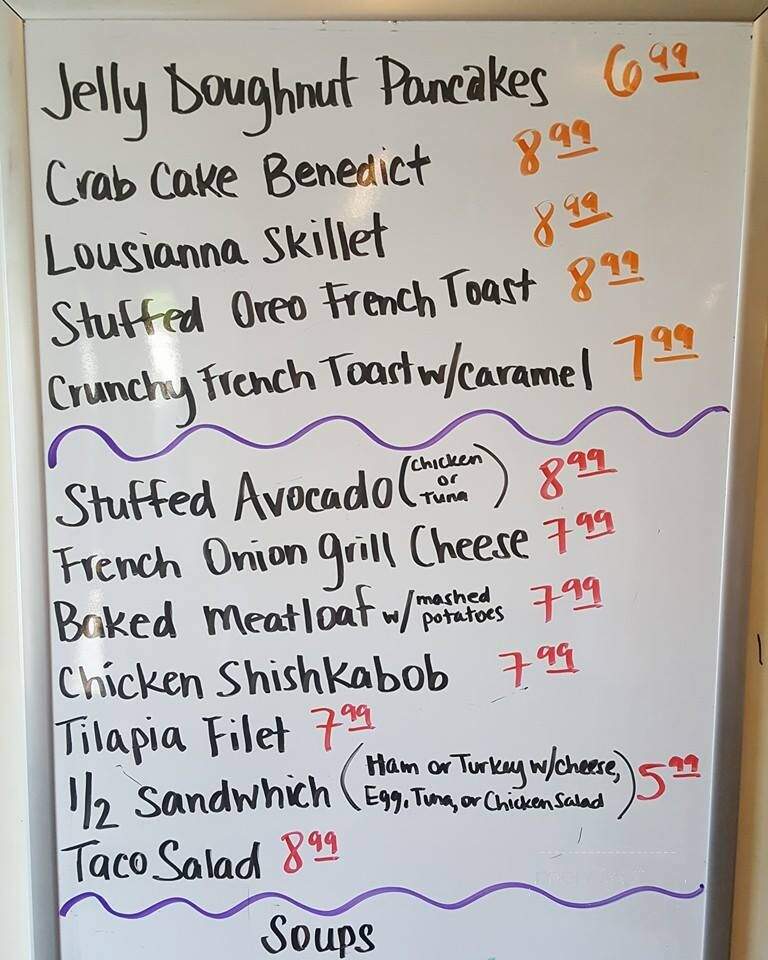 Jelly Doughnut Pancakes 6 99
Crab Cake Benedict 8 99
Lousianna Skillet 8 99
Stuffed Oreo French Toast 8 99
Crunchy French Toast w/caramel 7 99
Stuffed Avocado (Chicken or Tuna) 8 99
French Onion Grill Cheese 7 99
Baked Meatloaf w/ mashed potatoes 7 99
Chicken Shishkabob 7 99
Tilapia Filet 7 99
1/2 Sandwhich (Ham or Turkey w/cheese, Egg, Tuna, or Chicken Salad) 5 99
Taco Salad 8 99
Soups